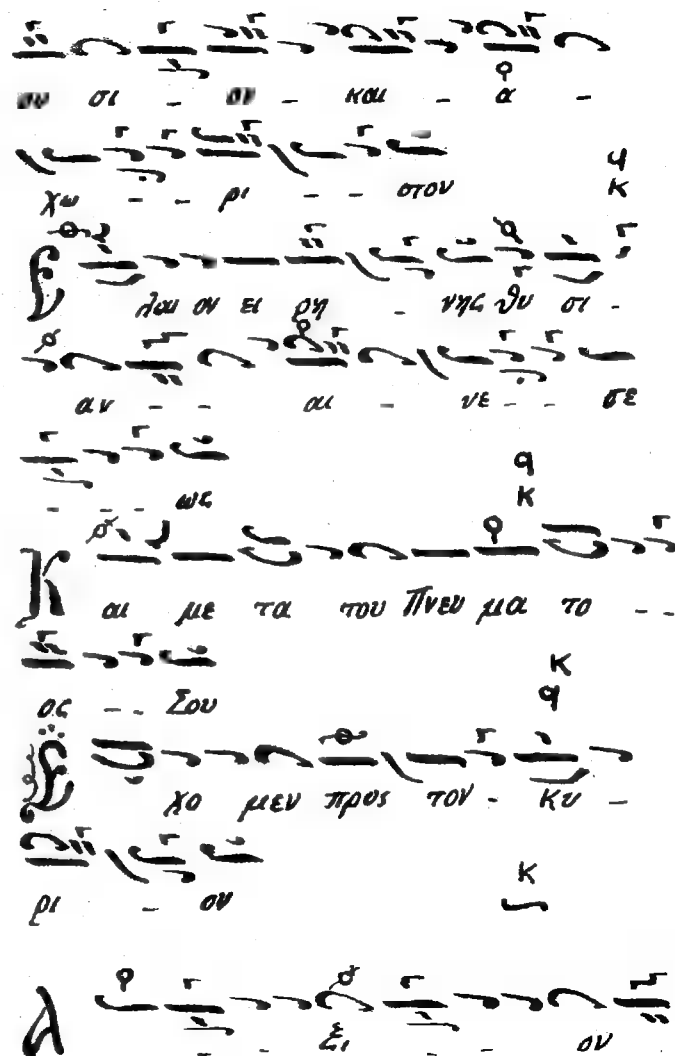 ου σι - ον - και - α -
χω - - ρι - - στον
Ε λαι ον ει ρη - νης θυ σι -
αν - - αι - νε - - σε
- - - ως
Κ αι με τα του Πνευ μα το - -
ος - - Σου
Ε χο μεν προς τον - κυ -
ρι - ον
Α - - ξι - - ον